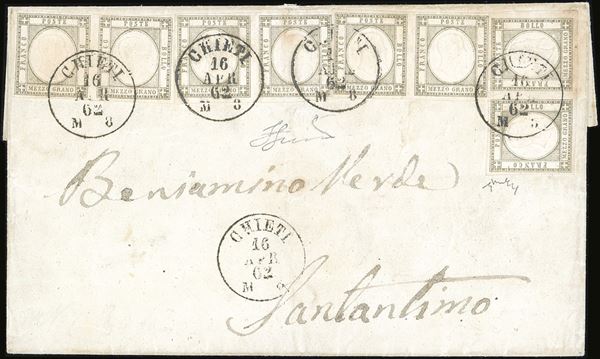 POSTE POSTE POSTE POSTE POSTE POSTE
FRANCO BOLLO FRANCO BOLLO FRANCO BOLLO FRANCO BOLLO FRANCO BOLLO FRANCO BOLLO
MEZZO GRANO MEZZO GRANO MEZZO GRANO MEZZO GRANO MEZZO GRANO MEZZO GRANO
BOLLO
MEZZO GRANO
BOLLO
POSTE
MEZZO GRANO
FRANCO
CHIETI
16
APR
62
M 8
CHIETI
16
APR
62
M 8
CHIETI
APR
62
M 8
CHIETI
16
APR
62
M 8
Beniamino Verde
CHIETI
16
APR
62
M 8
Santantimo